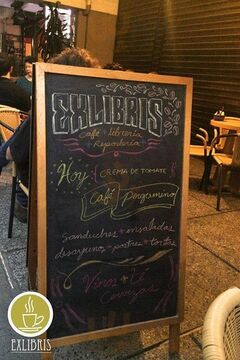 EXLIBRIS
Café + librería
+ Repostería
Hoy: CREMA DE TOMATE
Café Pergamino
Sanduches + ensaladas
desayunos + postres + tortas
Vinos + té
Cervezas
EXLIBRIS